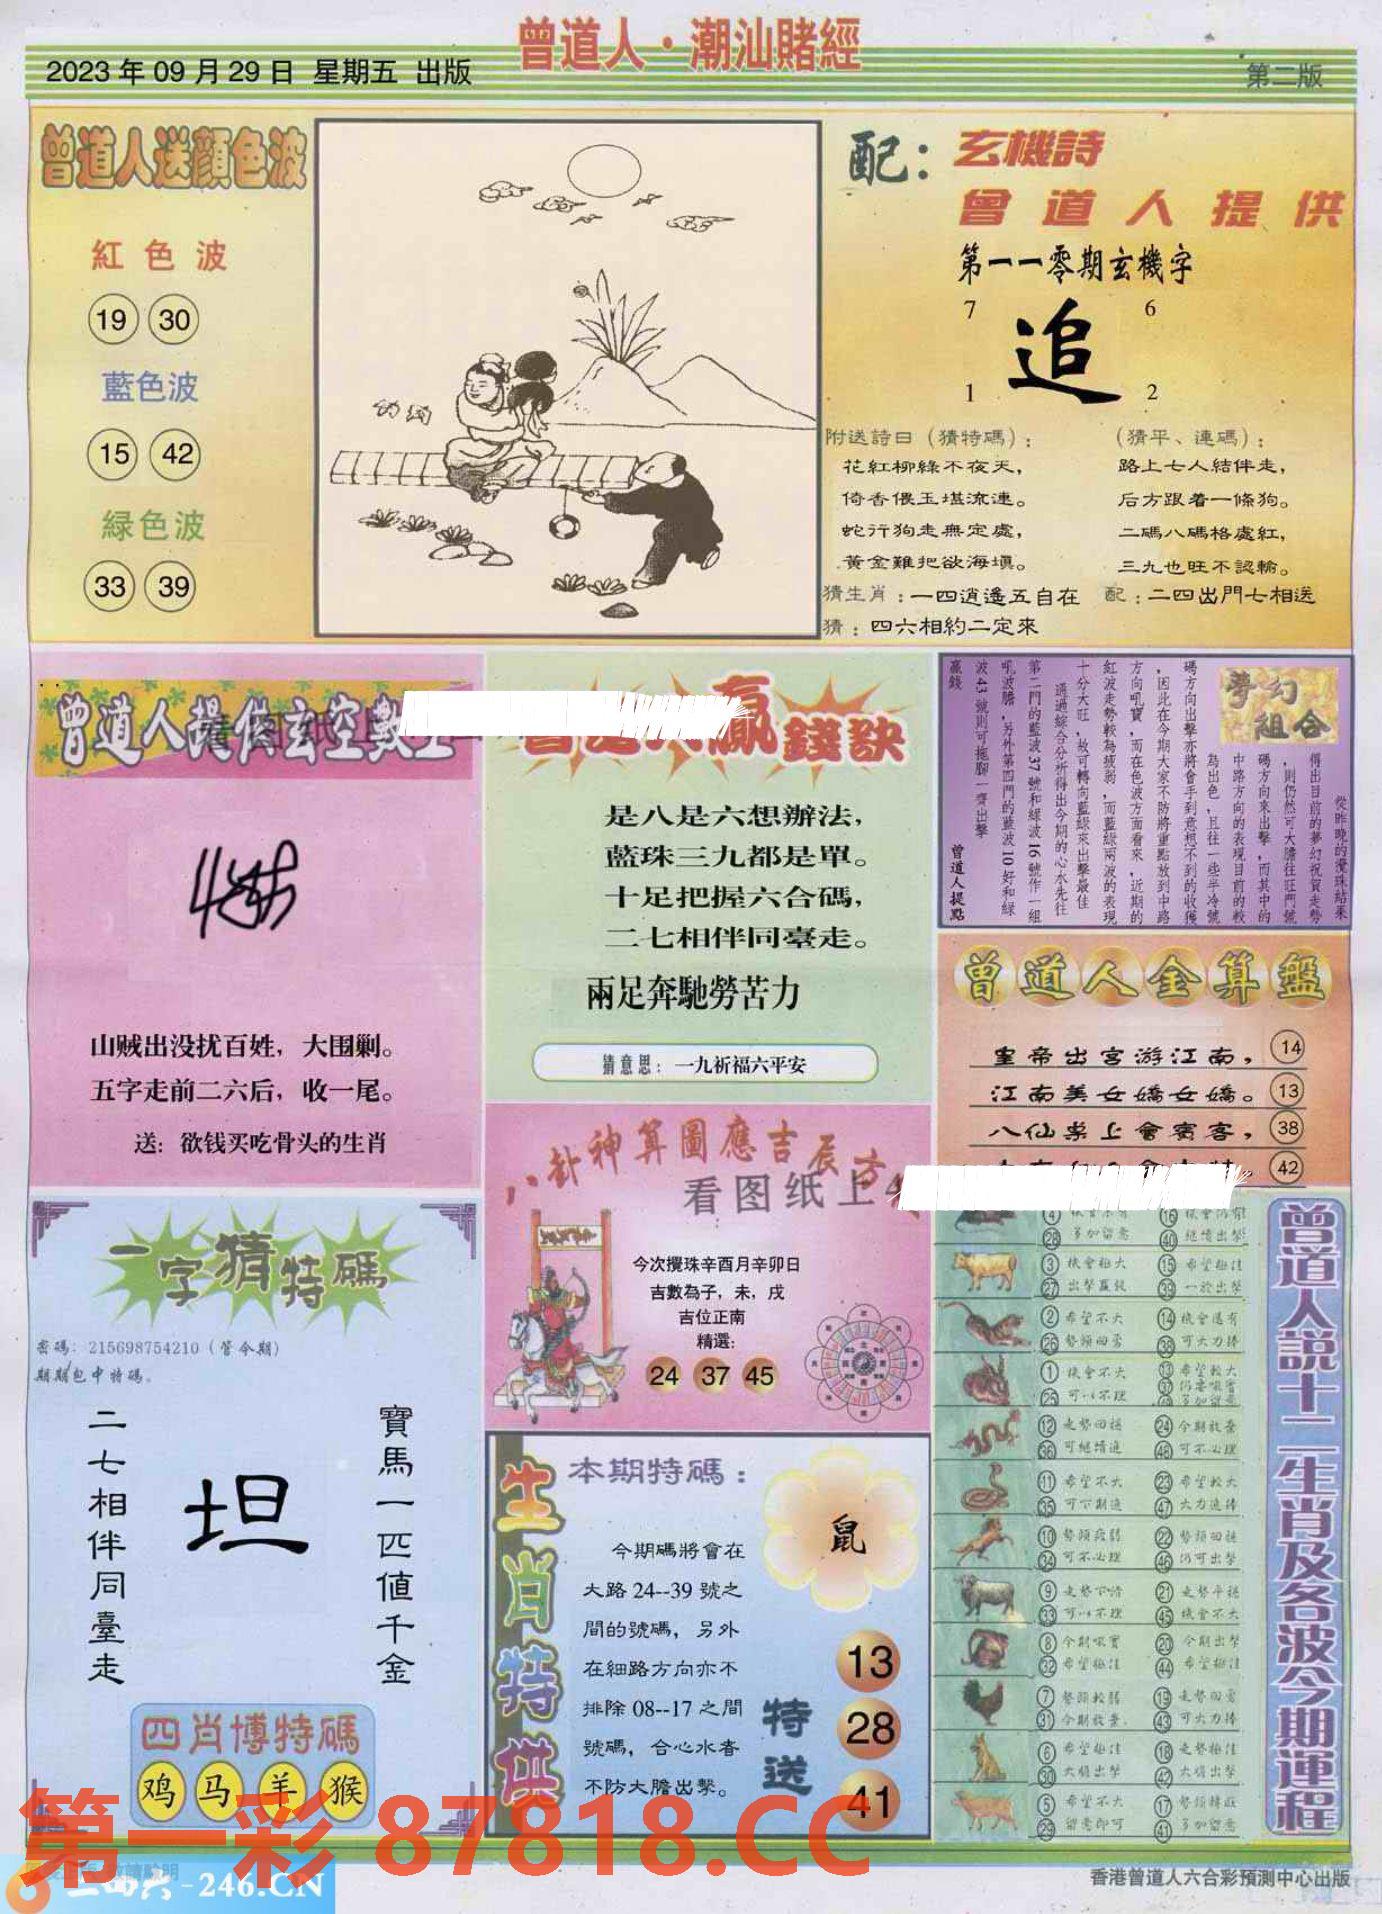 曾道人·潮汕賭經
2023年09月29日 星期五 出版
第二版
曾道人送顔色波
紅色波
19 30
藍色波
15 42
緑色波
33 39
配：玄機詩
曾道人提供
第一一零期玄機字
7 6
追
1 2
附送詩曰（猜特碼）：
花紅柳綠不夜天，
倚香偎玉堪流連。
蛇行狗走無定處，
黃金難把欲海填。
（猜平、連碼）：
路上七人結伴走，
后方跟着一條狗。
二碼八碼格處紅，
三九也旺不認輸。
猜生肖：一四逍遙五自在
配：二四出門七相送
猜：四六相約二定來
曾道人提供玄空數
山贼出没扰百姓，大围剿。
五字走前二六后，收一尾。
送：欲钱买吃骨头的生肖
贏錢訣
是八是六想辦法，
藍珠三九都是單。
十足把握六合碼，
二七相伴同臺走。
兩足奔馳勞苦力
猜意思：一九祈福六平安
夢幻組合
從昨晚的攪珠結果
得出目前的夢幻祝賀走勢
，則仍然可大膽往旺門號
碼方向來出擊，而其中的
中路方向的表現目前的較
為出色，且往一些半冷號
碼方向出擊亦將會手到意想不到的收獲
，因此在今期大家不防將重點放到中路
方向吼寶，而在色波方面看來，近期的
紅波走勢較為疲弱，而藍綠兩波的表現
十分大旺，故可轉向藍綠來出擊最佳
通過綜合分析得出今期的心水先往
第二門的藍波37號和綠波16號作一組
吼波膽，另外第四門的藍波10好和綠
波43號則可拖腳一齊出擊
贏錢
曾道人提點
曾道人金算盤
皇帝出宮游江南， 14
江南美女嬌女嬌。 13
八仙桌上會賓客， 38
42
八卦神算圖應吉辰方
看图纸上
今次攪珠辛酉月辛卯日
吉數為子，未，戌
吉位正南
精選：
24 37 45
一字猜特碼
密碼：215698754210（管今期）
期期包中特碼。
寶馬一匹值千金
坦
二七相伴同臺走
四肖博特碼
鸡 马 羊 猴
生肖特供
本期特碼：
鼠
今期碼將會在
大路24--39號之
間的號碼，另外
在細路方向亦不
排除08--17之間
號碼，合心水者
不防大膽出擊。
特送
13
28
41
曾道人説十二生肖及各波今期運程
4 16
28 多加留意 40 繼續出擊
3 機會極大 15 希望極佳
27 出擊贏錢 39 一於出擊
2 希望不大 14 機會還有
26 勢頭回勇 38 可大力捧
1 機會不大 13 希望較大
25 可以不理
12 走勢回穩 24 今期放棄
36 可繼續追 48 可不必理
11 希望不大 23 希望較大
35 可下期追 47 大力追捧
10 勢頭疲弱 22 勢頭回穩
34 可不必理 46 仍可出擊
9 21 走勢平穩
33 可以不理 45 機會不大
8 今期吼實 20 今期出擊
32 希望極佳 44 希望極佳
7 勢頭較弱 19 走勢回勇
31 今期放棄 43 可大力捧
6 希望極佳 18 走勢極佳
30 大膽出擊 42 大膽出擊
5 希望不大 17 勢頭轉旺
29 留意即可 41 多加留意
第一彩 87818.CC
二四六-246.CN
香港曾道人六合彩預測中心出版